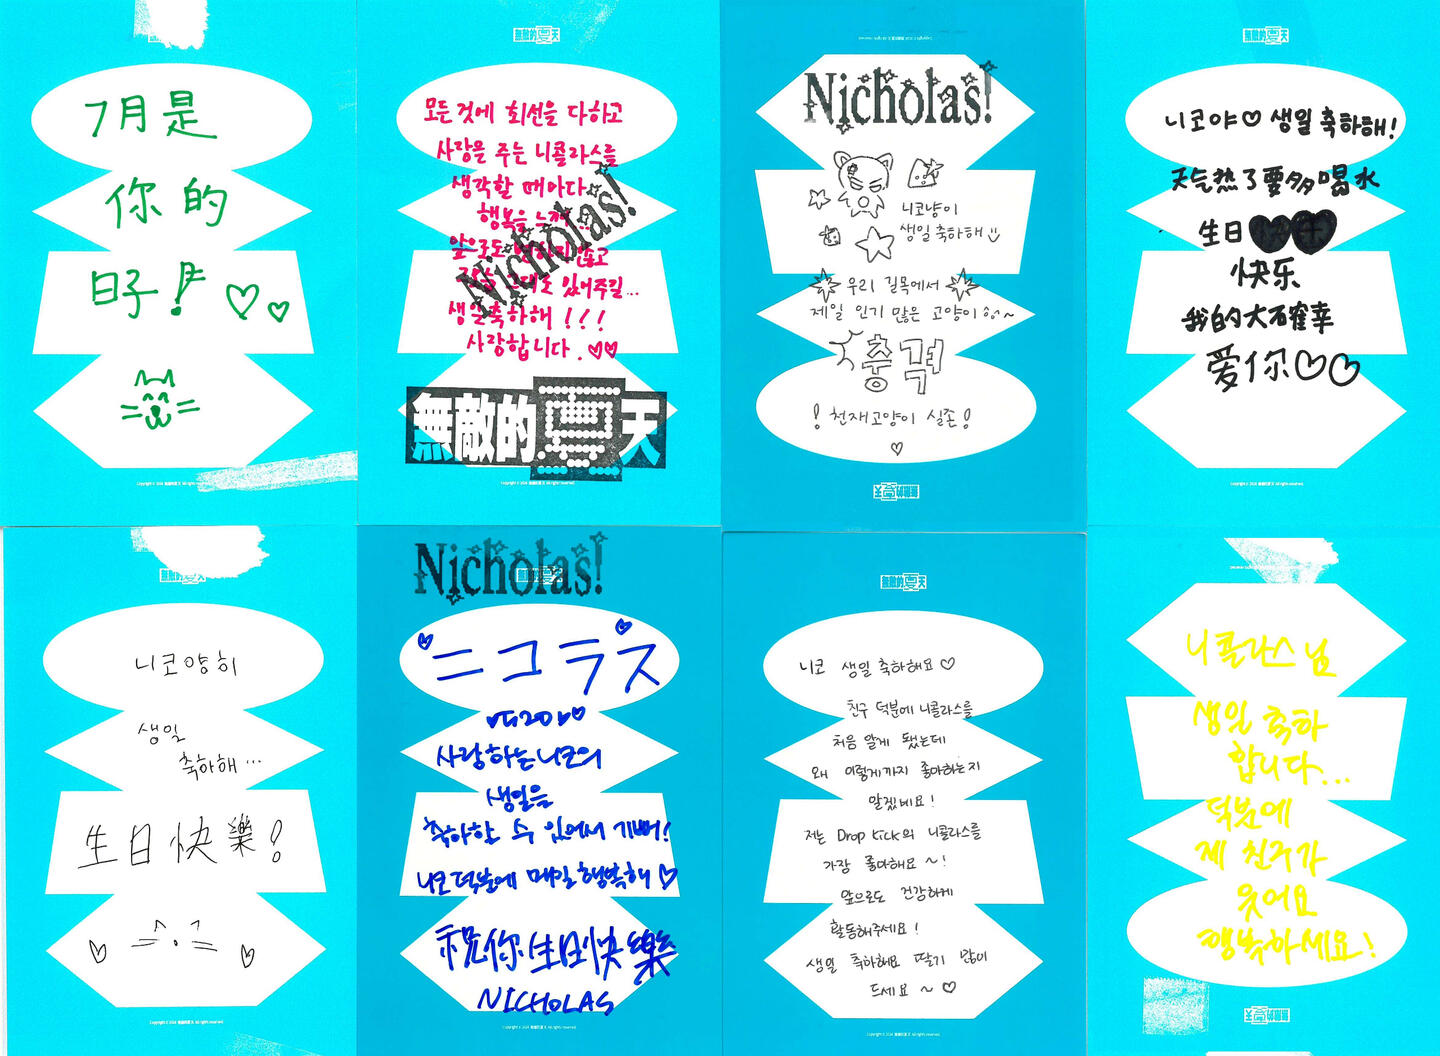 無敵的夏天
7月是
你的
日子!
Copyright © 2024 無敵的夏天 All rights reserved.
모든 것에 최선을 다하고
사랑을 주는 니콜라스를
생각할 때마다
행복을 느껴..
앞으로도 변하지 않고
있어주길...
생일축하해!!!
사랑합니다.
Nicholas!
無敵的夏天
Nicholas!
니코냥이
생일축하해
우리 길목에서
제일 인기 많은 고양이
충격
! 천재고양이 실존!
無敵的夏天
니코야♡ 생일축하해!
天气热了要多喝水
生日
快乐
我的大确幸
爱你♡♡
無敵的夏天
니코양히
생일
축하해...
生日快樂!
Nicholas!
ニコラス
사랑하는니코의
생일을
축하할 수 있어서 기뻐!
니코덕분에 매일행복해♡
祝你生日快樂
NICHOLAS
無敵的夏天
니코 생일축하해요♡
친구 덕분에 니콜라스를
처음 알게 됐는데
왜 이렇게까지 좋아하는지
알겠네요!
저는 Drop Kick의 니콜라스를
가장 좋아해요~!
앞으로도 건강하게
활동해주세요!
생일 축하해요 딸기 많이
드세요~♡
니콜라스님
생일 축하
합니다...
덕분에
제 친구가
웃어요
행복하세요!